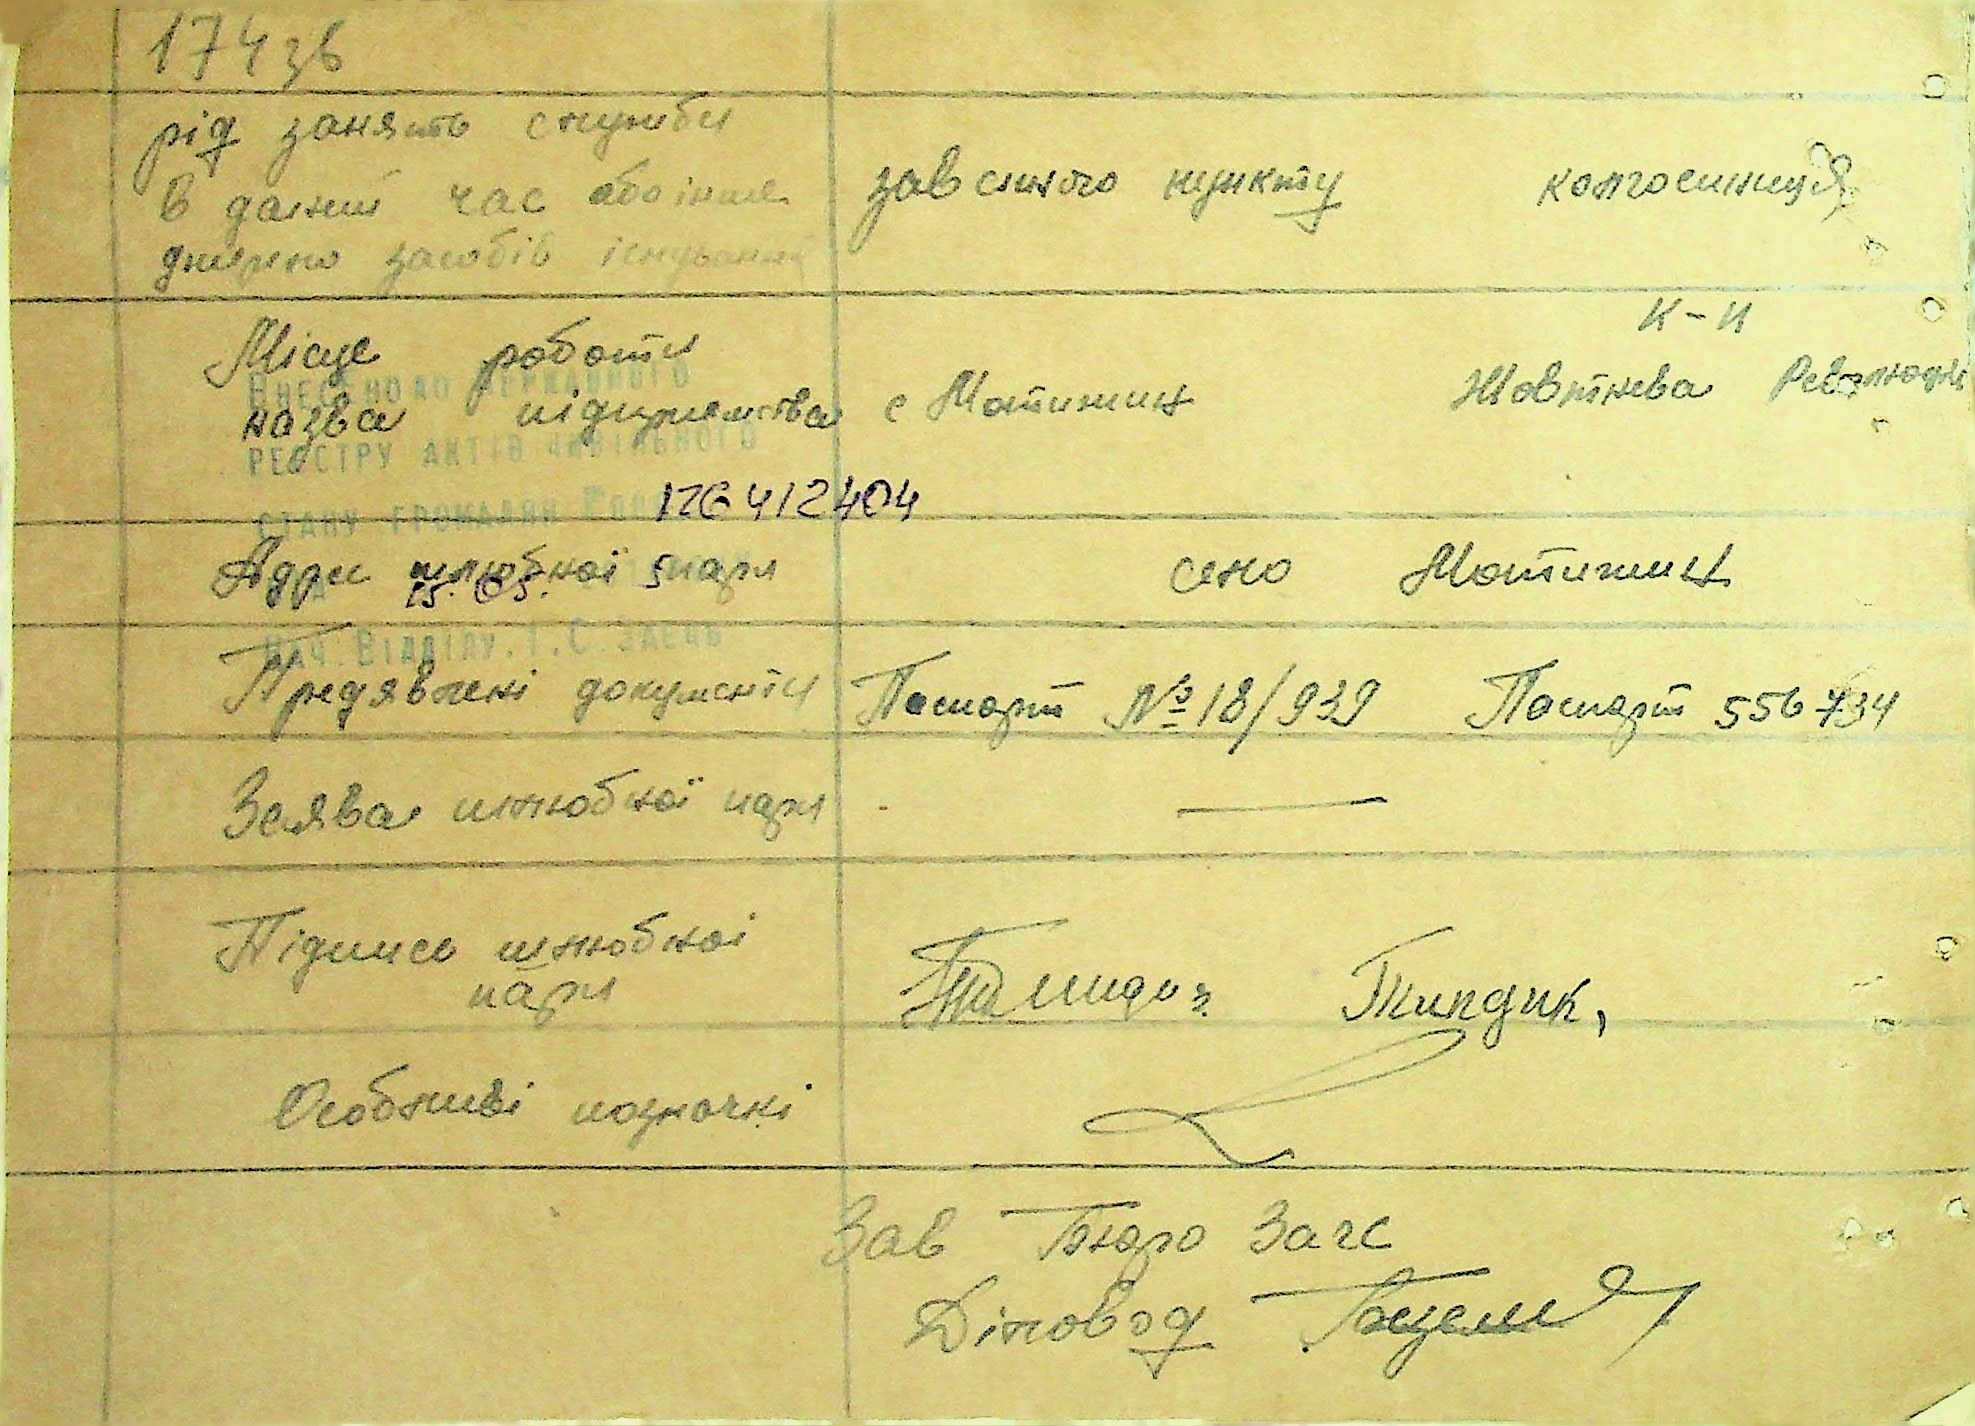 174зв
рід занять служби
в даний час або інше
джерело засобів існування
завсипного пункту колгоспниця
Місце роботи
назва підприємства
с Мотижин
К-п
Жовтнева Революція
ВНЕСЕНО ДО ДЕРЖАВНОГО
РЕЄСТРУ АКТІВ ЦИВІЛЬНОГО
СТАНУ ГРОМАДЯН
126412404
Адрес шлюбної пари село Мотижин
15. 05.
НАЧ. ВІДДІЛУ. І. С. ЗАЄЦЬ
Предявлені документи Паспорт № 18/939 Паспорт 556734
Заява шлюбної пари —
Підпись шлюбної
пари
Особливі позначкі
Зав Бюро Загс
Діловод